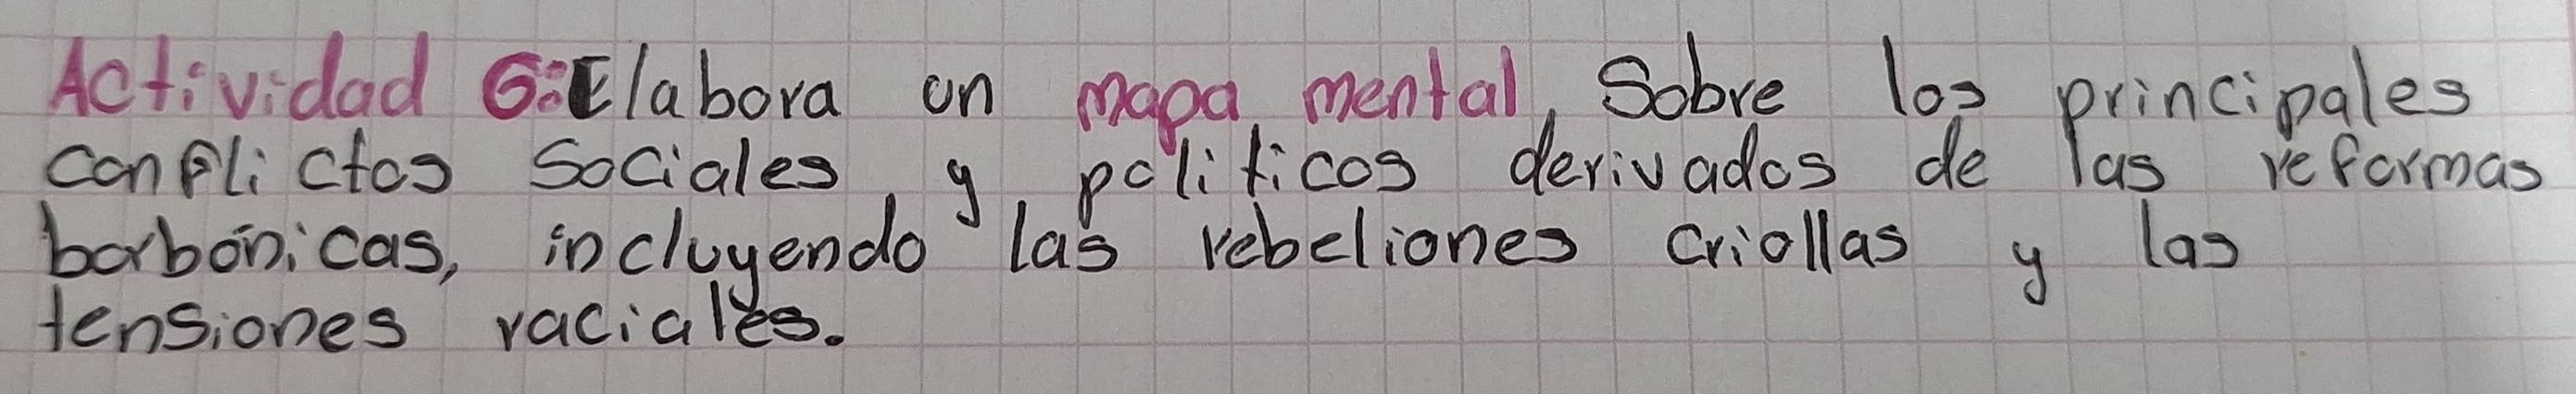 Actividad 6: Elabora un mapa mental, Sobre los principales
conflictos Sociales, y políticos derivados de las reformas
borbónicas, incluyendo las rebeliones criollas y las
tensiones raciales.